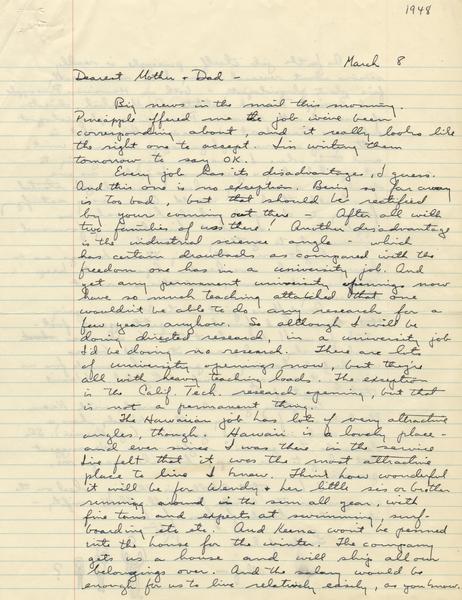 1948
March 8
Dearest Mother + Dad -
Big news in the mail this morning.
Pineapple offered me the job we've been
corresponding about, and it really looks like
the right one to accept. I'm writing them
tomorrow to say OK.
Every job has its disadvantages, I guess.
And this one is no exception. Being so far away
is too bad, but that should be rectified
by your coming out there - After all with
two families of us there! Another disadvantage
is the industrial science angle - which
has certain drawbacks as compared with the
freedom one has in a university job. And
yet any permanent university opening now
have so much teaching attached that one
wouldn't be able to do any research for a
few years anyhow. So although I will be
doing directed research, in a university job
I'd be doing no research. There are lots
of university openings now, but they're
all with heavy teaching loads. The exception
is the Calif Tech. research opening, but that
is not a permanent thing.
The Hawaiian job has lots of very attractive
angles, though. Hawaii is a lovely place -
and ever since I was there in the service
I've felt that it was the most attractive
place to live I know. Think how wonderful
it will be for Wendy + her little sis or brother
running around in the sun all year, with
fine tans and experts at swimming surf-
boarding etc etc. And Keena won't be penned
into the house for the winter. The company
gets us a house and will ship all our
belongings over. And the salary would be
enough for us to live relatively easily, as you know.